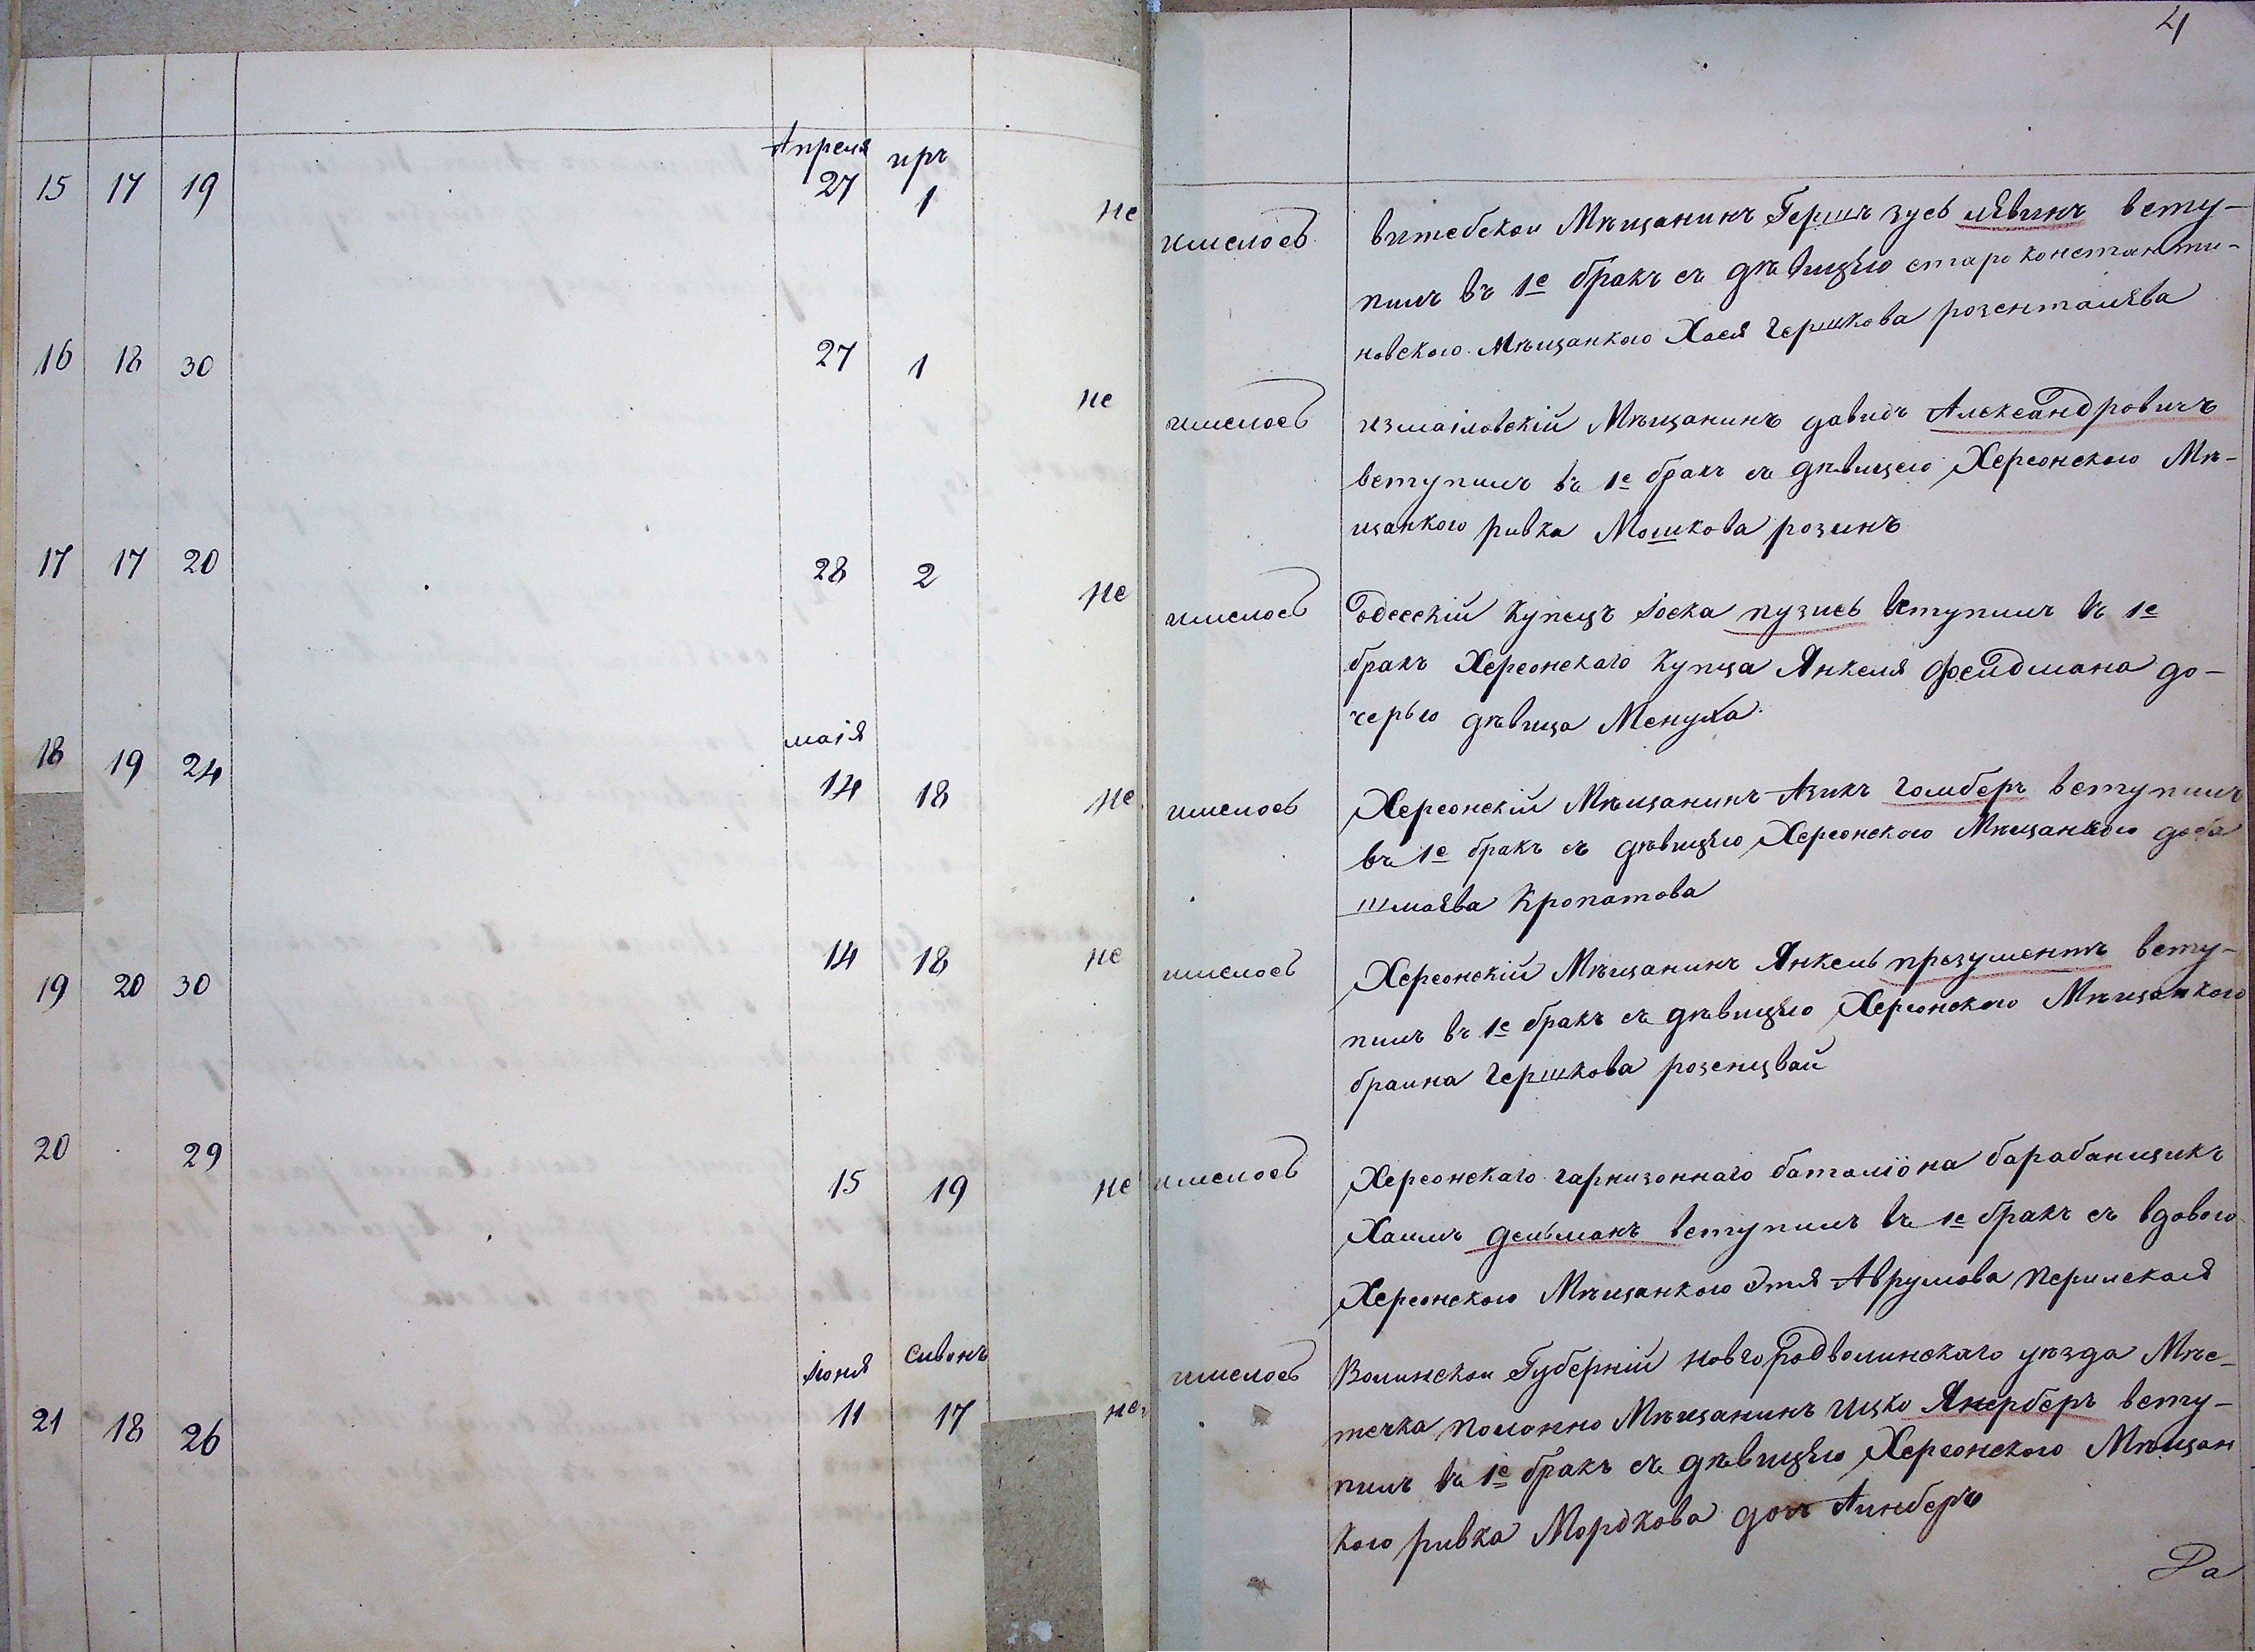 4
Апреля иръ
15 17 19 27 1 не
имелось витебскои Мѣщанинъ Гершъ зусь лѣвинъ всту-
пилъ въ 1е бракъ съ дѣвицѣю староконстанти-
новского Мѣщанкою Хася гершкова розенталѣва
16 18 30 27 1 не
имелось измаіловскій Мѣщанинъ давидъ Александровичъ
вступилъ въ 1е бракъ съ дѣвицею Херсонского Мѣ-
щанкою ривка Мошкова розинъ
17 17 20 28 2 не
имелось Одесскій купецъ Іоска пузись вступилъ въ 1е
бракъ Херсонскаго купца Янкеля фелдмана до-
черью дѣвица Менуха
маія
18 19 24 14 18 не
имелось Херсонскій Мѣщанинъ Азикъ гомберъ вступилъ
въ 1е бракъ съ дѣвицѣю Херсонского Мѣщанкою доба
шмаѣва Кропатова
19 20 30 14 18 не
имелось Херсонскій Мѣщанинъ Янкель презументъ всту-
пилъ въ 1е бракъ съ дѣвицѣю Херсонского Мѣщанкою
браина гершкова розенцвай
20 29 15 19 не
имелось Херсонскаго гарнизоннаго баталіона барабанщикъ
Хаимъ дельманъ вступилъ въ 1е бракъ съ вдовою
Херсонского Мѣщанкою Этля Аврумова Перилская
Іюня Сивонъ
21 18 26 11 17 не
имелось Волинскои Губерній новгородволинскаго уѣзда Мѣс-
течка полонно Мѣщанинъ Ицко Янерберъ всту-
пилъ въ 1е бракъ съ дѣвицѣю Херсонского Мѣщан
кою ривка Мордкова дочъ Аинберъ
Ра